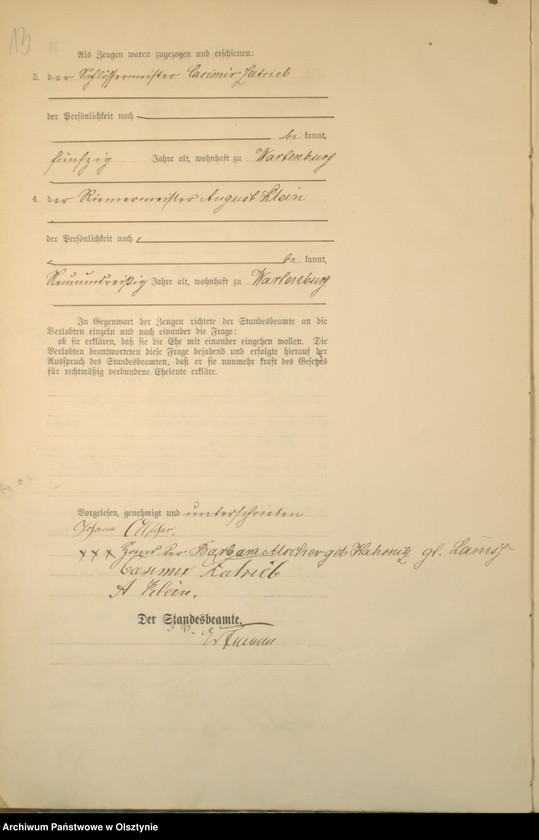 13
Als Zeugen waren zugezogen und erschienen:
3. der Schlossermeister Casimir Zatrieb
der Persönlichkeit nach
be kannt,
fünfzig Jahre alt, wohnhaft zu Wartenburg
4. der Riemermeister August Klein
der Persönlichkeit nach
be kannt,
Neununddreißig Jahre alt, wohnhaft zu Wartenburg
In Gegenwart der Zeugen richtete der Standesbeamte an die
Verlobten einzeln und nach einander die Frage:
ob sie erklären, daß sie die Ehe mit einander eingehen wollen. Die
Verlobten beantworteten diese Frage bejahend und erfolgte hierauf der
Ausspruch des Standesbeamten, daß er sie nunmehr kraft des Gesetzes
für rechtmäßig verbundene Eheleute erkläre.
Vorgelesen, genehmigt und unterschrieben
Johann
××× der Barbara geb
Casimir Zatrieb
A Klein.
Der Standesbeamte.
Archiwum Państwowe w Olsztynie